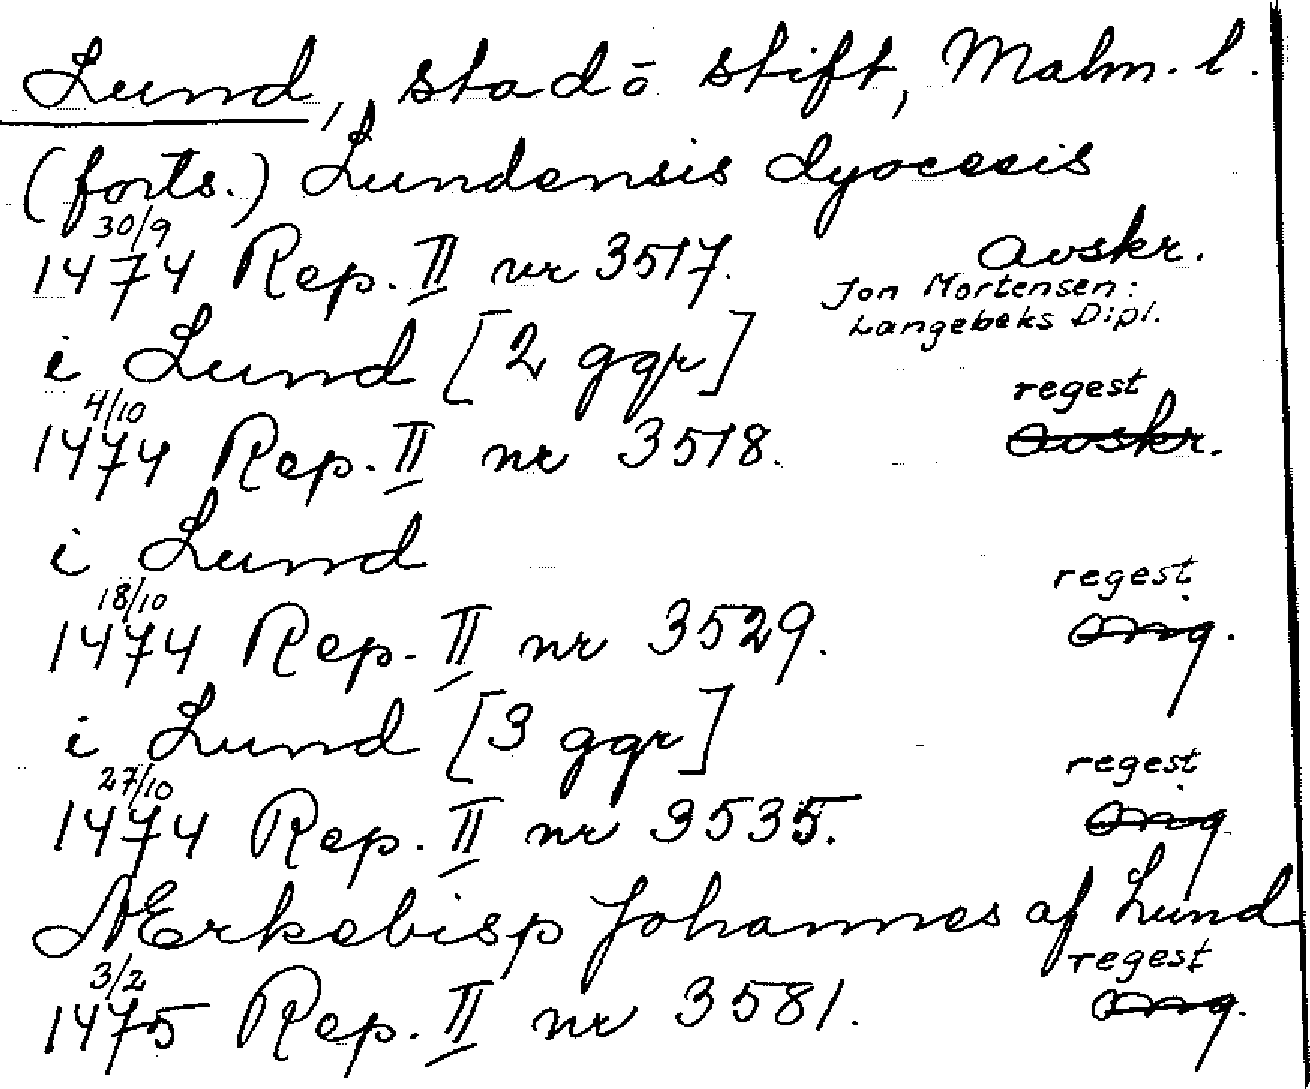 Lund, stad o stift, Malm. l.
(forts.) Lundensis dyocesis
1474 30/9 Rep. II nr 3517. avskr.
Jon Mortensen:
Langebeks Dipl.
i Lund [2 ggr]
regest
1474 4/10 Rep. II nr 3518. avskr.
i Lund
regest
1474 18/10 Rep. II nr 3529. orig.
i Lund [3 ggr]
regest
1474 27/10 Rep. II nr 3535. orig
Ærkebisp Johannes af Lund
regest
1475 3/2 Rep. II nr 3581. orig.